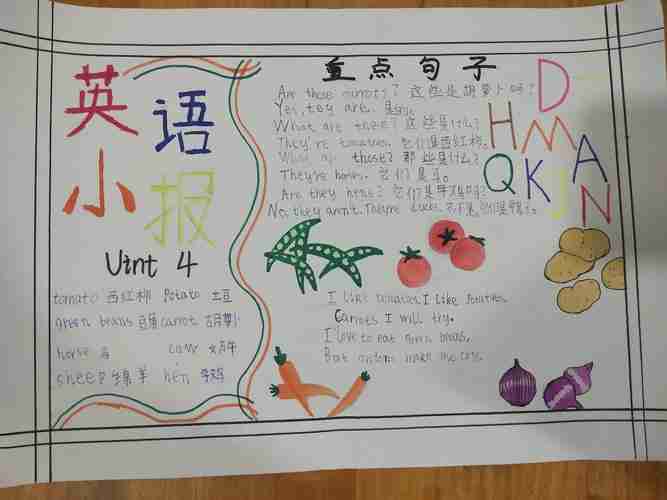 英语
小报
Uint 4
tomato 西红柿 Potato 土豆
green beans 豆角 carrot 胡萝卜
horse 马 cow 奶牛
sheep 绵羊 hen 母鸡
重点句子
Are these carrots? 这些是胡萝卜吗?
Yes, they are. 是的。
What are these? 这些是什么?
They're tomatoes. 它们是西红柿。
What are those? 那些是什么?
They're horses. 它们是马。
Are they hens? 它们是母鸡吗?
No, they aren't. They're ducks. 不是,它们是鸭子。
D
H M A
Q K J N
I like tomatoes. I like potatoes.
Carrots I will try.
I love to eat green beans,
But onions make me cry.